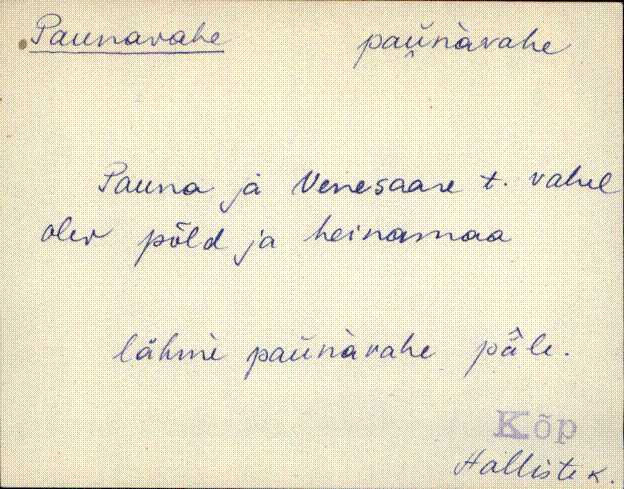 Paunavahe paŭ̯nàvahe
Pauna ja Venesaare t. vahel
olev põld ja heinamaa
lähmè paŭnàvahe pä̂le.
Kõp
Halliste k.